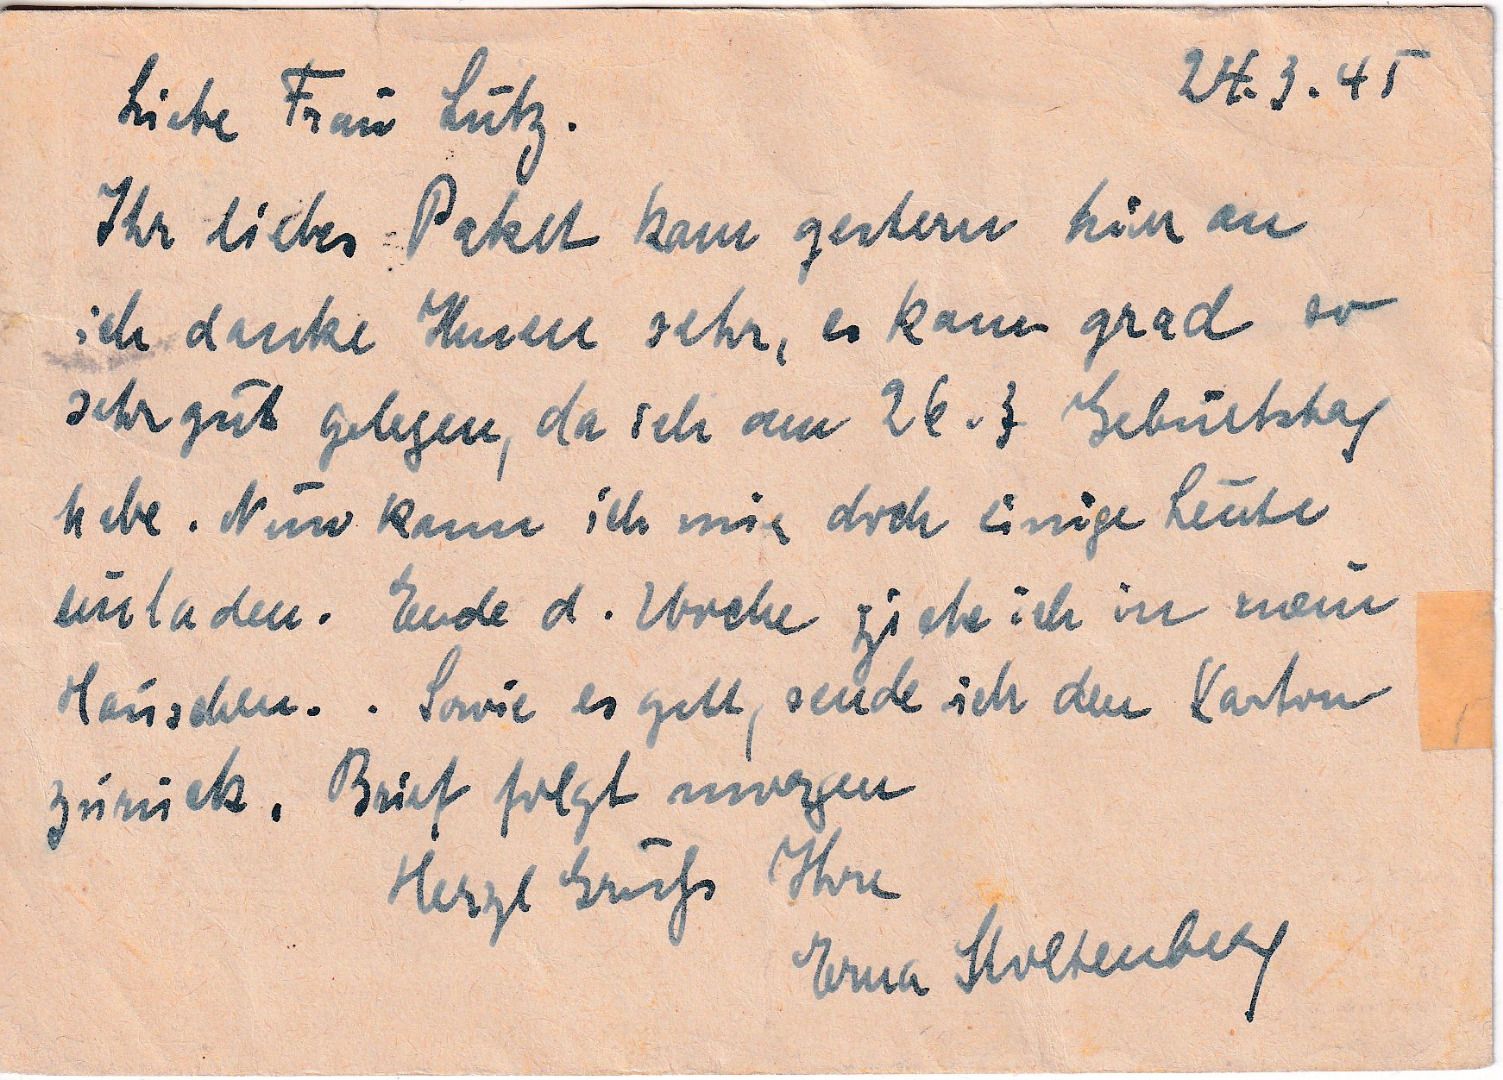 24.3.45
Liebe Frau Lutz.
Ihr liebes Paket kam gestern hier an
ich danke Ihnen sehr, es kam grad so
sehr gut gelegen, da ich am 26.3 Geburtstag
habe. Nun kann ich mir doch einige Leute
einladen. Ende d. Woche ziehe ich in mein
Häuschen. . Sowie es geht, sende ich den Karton
zurück. Brief folgt morgen
Herzl Grüße Ihre
Erna Stoltenberg